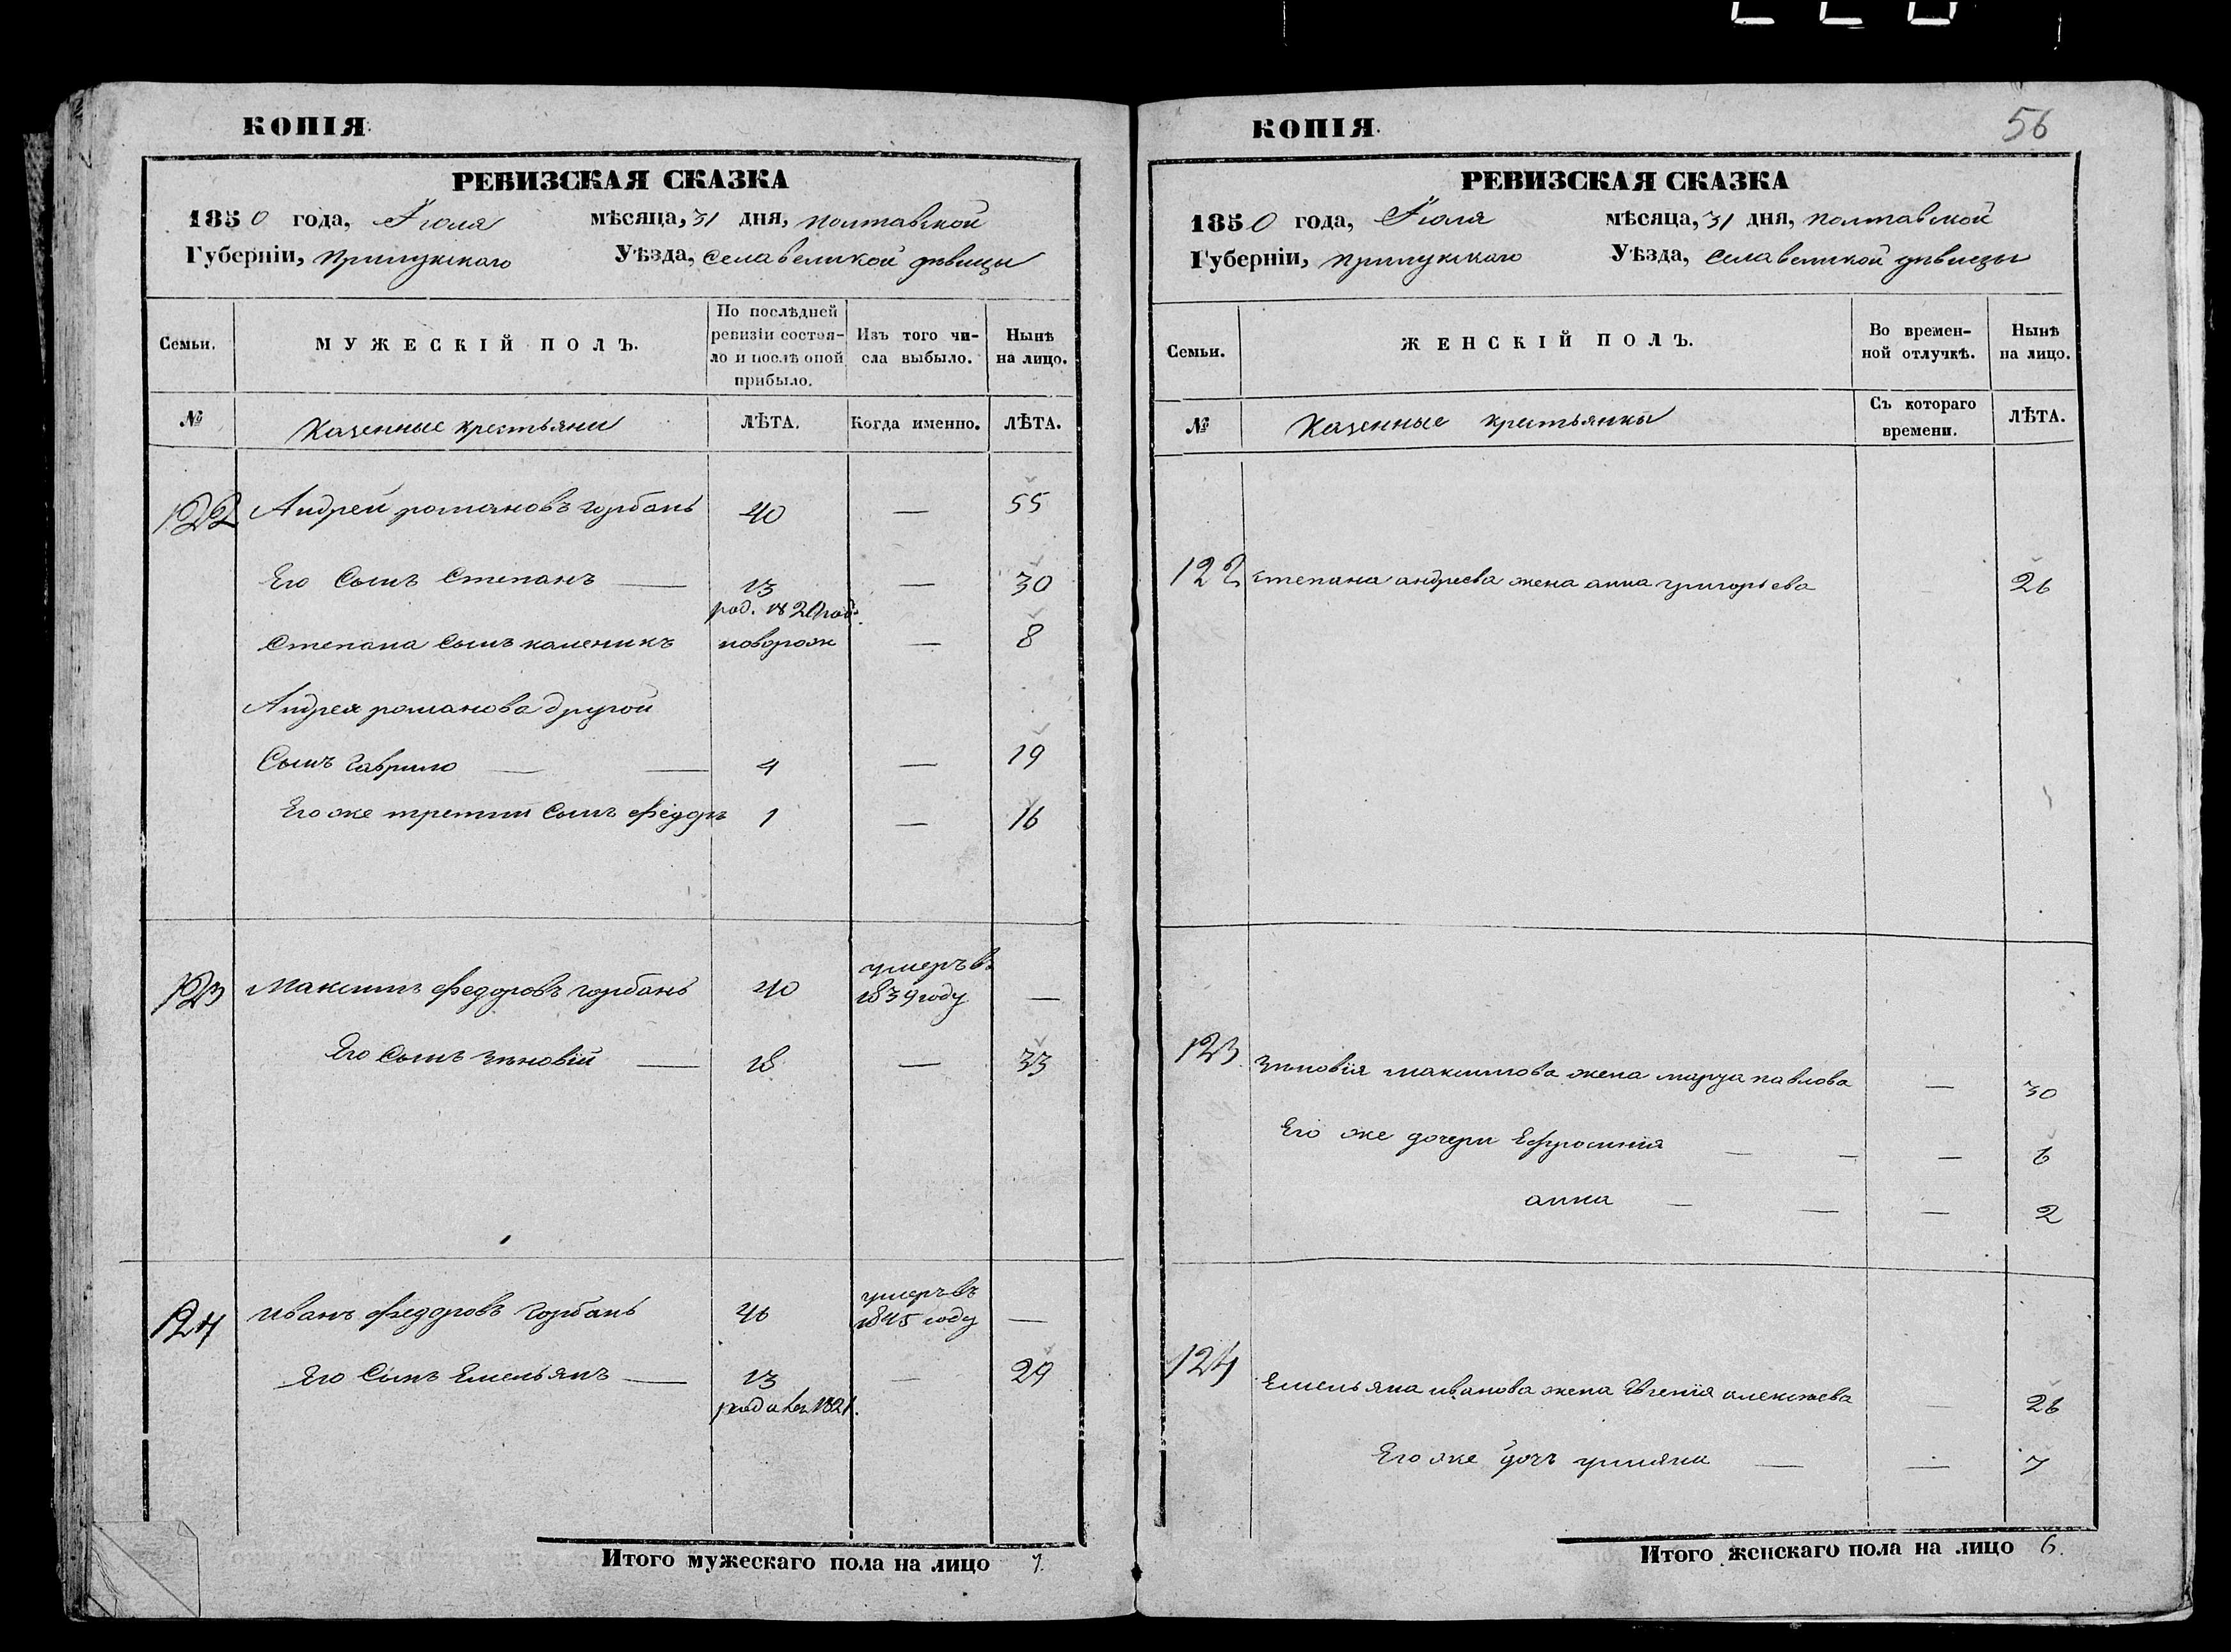 КОПІЯ.
РЕВИЗСКАЯ СКАЗКА
1850 года, Іюля мѣсяца, 31 дня, полтавской
Губерніи, прилукского Уѣзда, села великой дѣвицы
Семьи.
МУЖЕСКІЙ ПОЛЪ.
По послѣдней ревизіи состоя-
ло и послѣ оной прибыло.
Изъ того чи-
сла выбыло.
Нынѣ на лицо.
№
Казенные крестьяни
ЛѢТА.
Когда именно.
ЛѢТА.
122 Андрей романовъ горбань 40 — 55
Его Сынъ Степанъ — 13 — 30
род. 1820 год.
Степана Сынъ каленикъ новорож — 8
Андрея романова другой
Сынъ гаврило — — 4 — 19
Его же третий Сынъ Федоръ 1 — 16
умеръ въ
123 Максимъ Федоровъ горбань 40 1839 году —
Его Сынъ зѣновій — 18 — 33
умеръ въ
124 иванъ Федоровъ горбань 46 1845 году —
Его Сынъ Емельянъ — 13 — 29
1821.
Итого мужескаго пола на лицо 7.
КОПІЯ.
56
РЕВИЗСКАЯ СКАЗКА
1850 года, Іюля мѣсяца, 31 дня, полтавской
Губерніи, прилукского Уѣзда, села великой дѣвицы
Семьи.
ЖЕНСКІЙ ПОЛЪ.
Во времен-
ной отлучкѣ.
Нынѣ на лицо.
№
Казенные крестьянки
Съ котораго времени.
ЛѢТА.
122 степана андреева жена анна григорьева 26
123 зиновія максимова жена марфа павлова — 30
Его же дочери Ефросинія — — — 6
анна — — — 2
124 Емельяна иванова жена Евгенія алексѣева — 26
Его же дочь улияна — — 7
Итого женскаго пола на лицо 6.